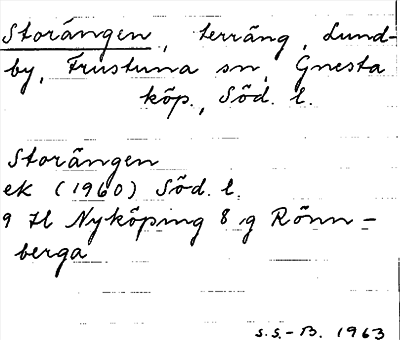 Storängen, terräng, Lund-
by, Frustuna sn, Gnesta
köp., Söd. l.
Storängen
ek (1960) Söd. l.
9 H Nyköping 8 g Rönn-
berga
S.S.-B. 1963